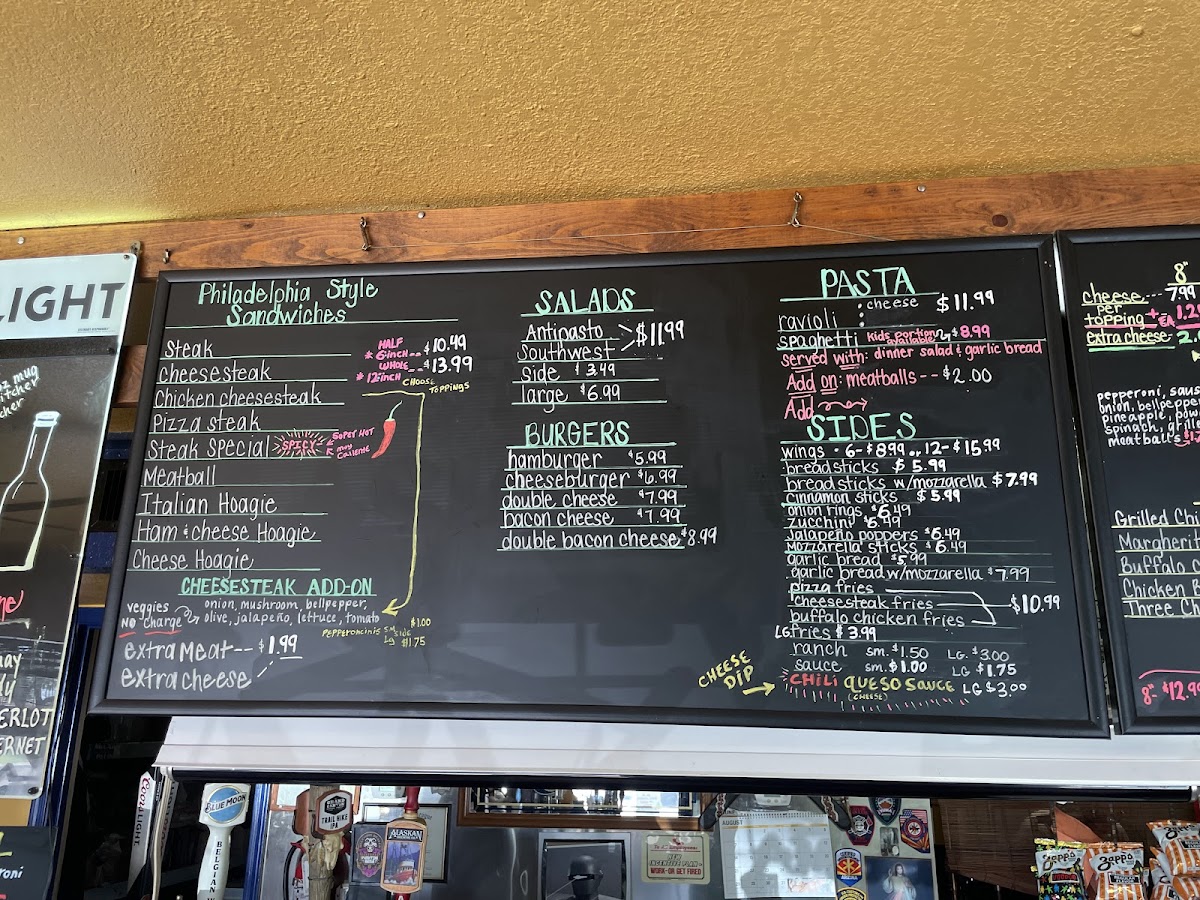 LIGHT
oz mug
pitcher
Philadelphia Style
Sandwiches
Steak
cheesesteak
Chicken cheesesteak
Pizza steak
Steak Special SPICY
Meatball
Italian Hoagie
Ham & cheese Hoagie
Cheese Hoagie
HALF
* 6inch -- $10.49
WHOLE
* 12inch -- $13.99
CHOOSE
TOPPINGS
SUPER HOT
muy
Caliente
CHEESESTEAK ADD-ON
veggies
NO charge
onion, mushroom, bellpepper,
olive, jalapeño, lettuce, tomato
Pepperoncinis SM SIDE $1.00
LG $1.75
extra Meat -- $1.99
extra cheese
SALADS
Antipasto
Southwest
$11.99
side $3.49
large $6.99
BURGERS
hamburger $5.99
cheeseburger $6.99
double cheese $7.99
bacon cheese $7.99
double bacon cheese $8.99
PASTA
ravioli : cheese $11.99
spaghetti : Kids portion available $8.99
served with: dinner salad & garlic bread
Add on: meatballs -- $2.00
Add
SIDES
wings • 6- $8.99 or 12- $15.99
breadsticks $5.99
breadsticks w/mozzarella $7.99
cinnamon sticks $5.99
onion rings $6.49
zucchini $6.49
jalapeño poppers $6.49
mozzarella sticks $6.49
garlic bread $5.99
garlic bread w/mozzarella $7.99
pizza fries
cheesesteak fries
buffalo chicken fries
$10.99
LG fries $3.99
ranch sm. $1.50 LG. $3.00
sauce sm. $1.00 LG $1.75
CHEESE
DIP
CHILI QUESO SAUCE LG $3.00
(CHEESE)
8"
cheese --- 7.99
per
topping + EA 1.2
extra cheese 2.
pepperoni, saus
onion, bellpepper
pineapple,
spinach, grille
meatballs
Grilled Chi
Margherit
Buffalo C
Chicken B
Three Ch
8"- $12.99
ERLOT
ERNET
roni
Coors LIGHT
BLUE MOON
BELGIAN
TRAIL HIKE
IPA
ALASKAN
NEW
INCENTIVE PLAN-
WORK-OR GET FIRED
AUGUST
Zapp's
VOODOO
Zapp's